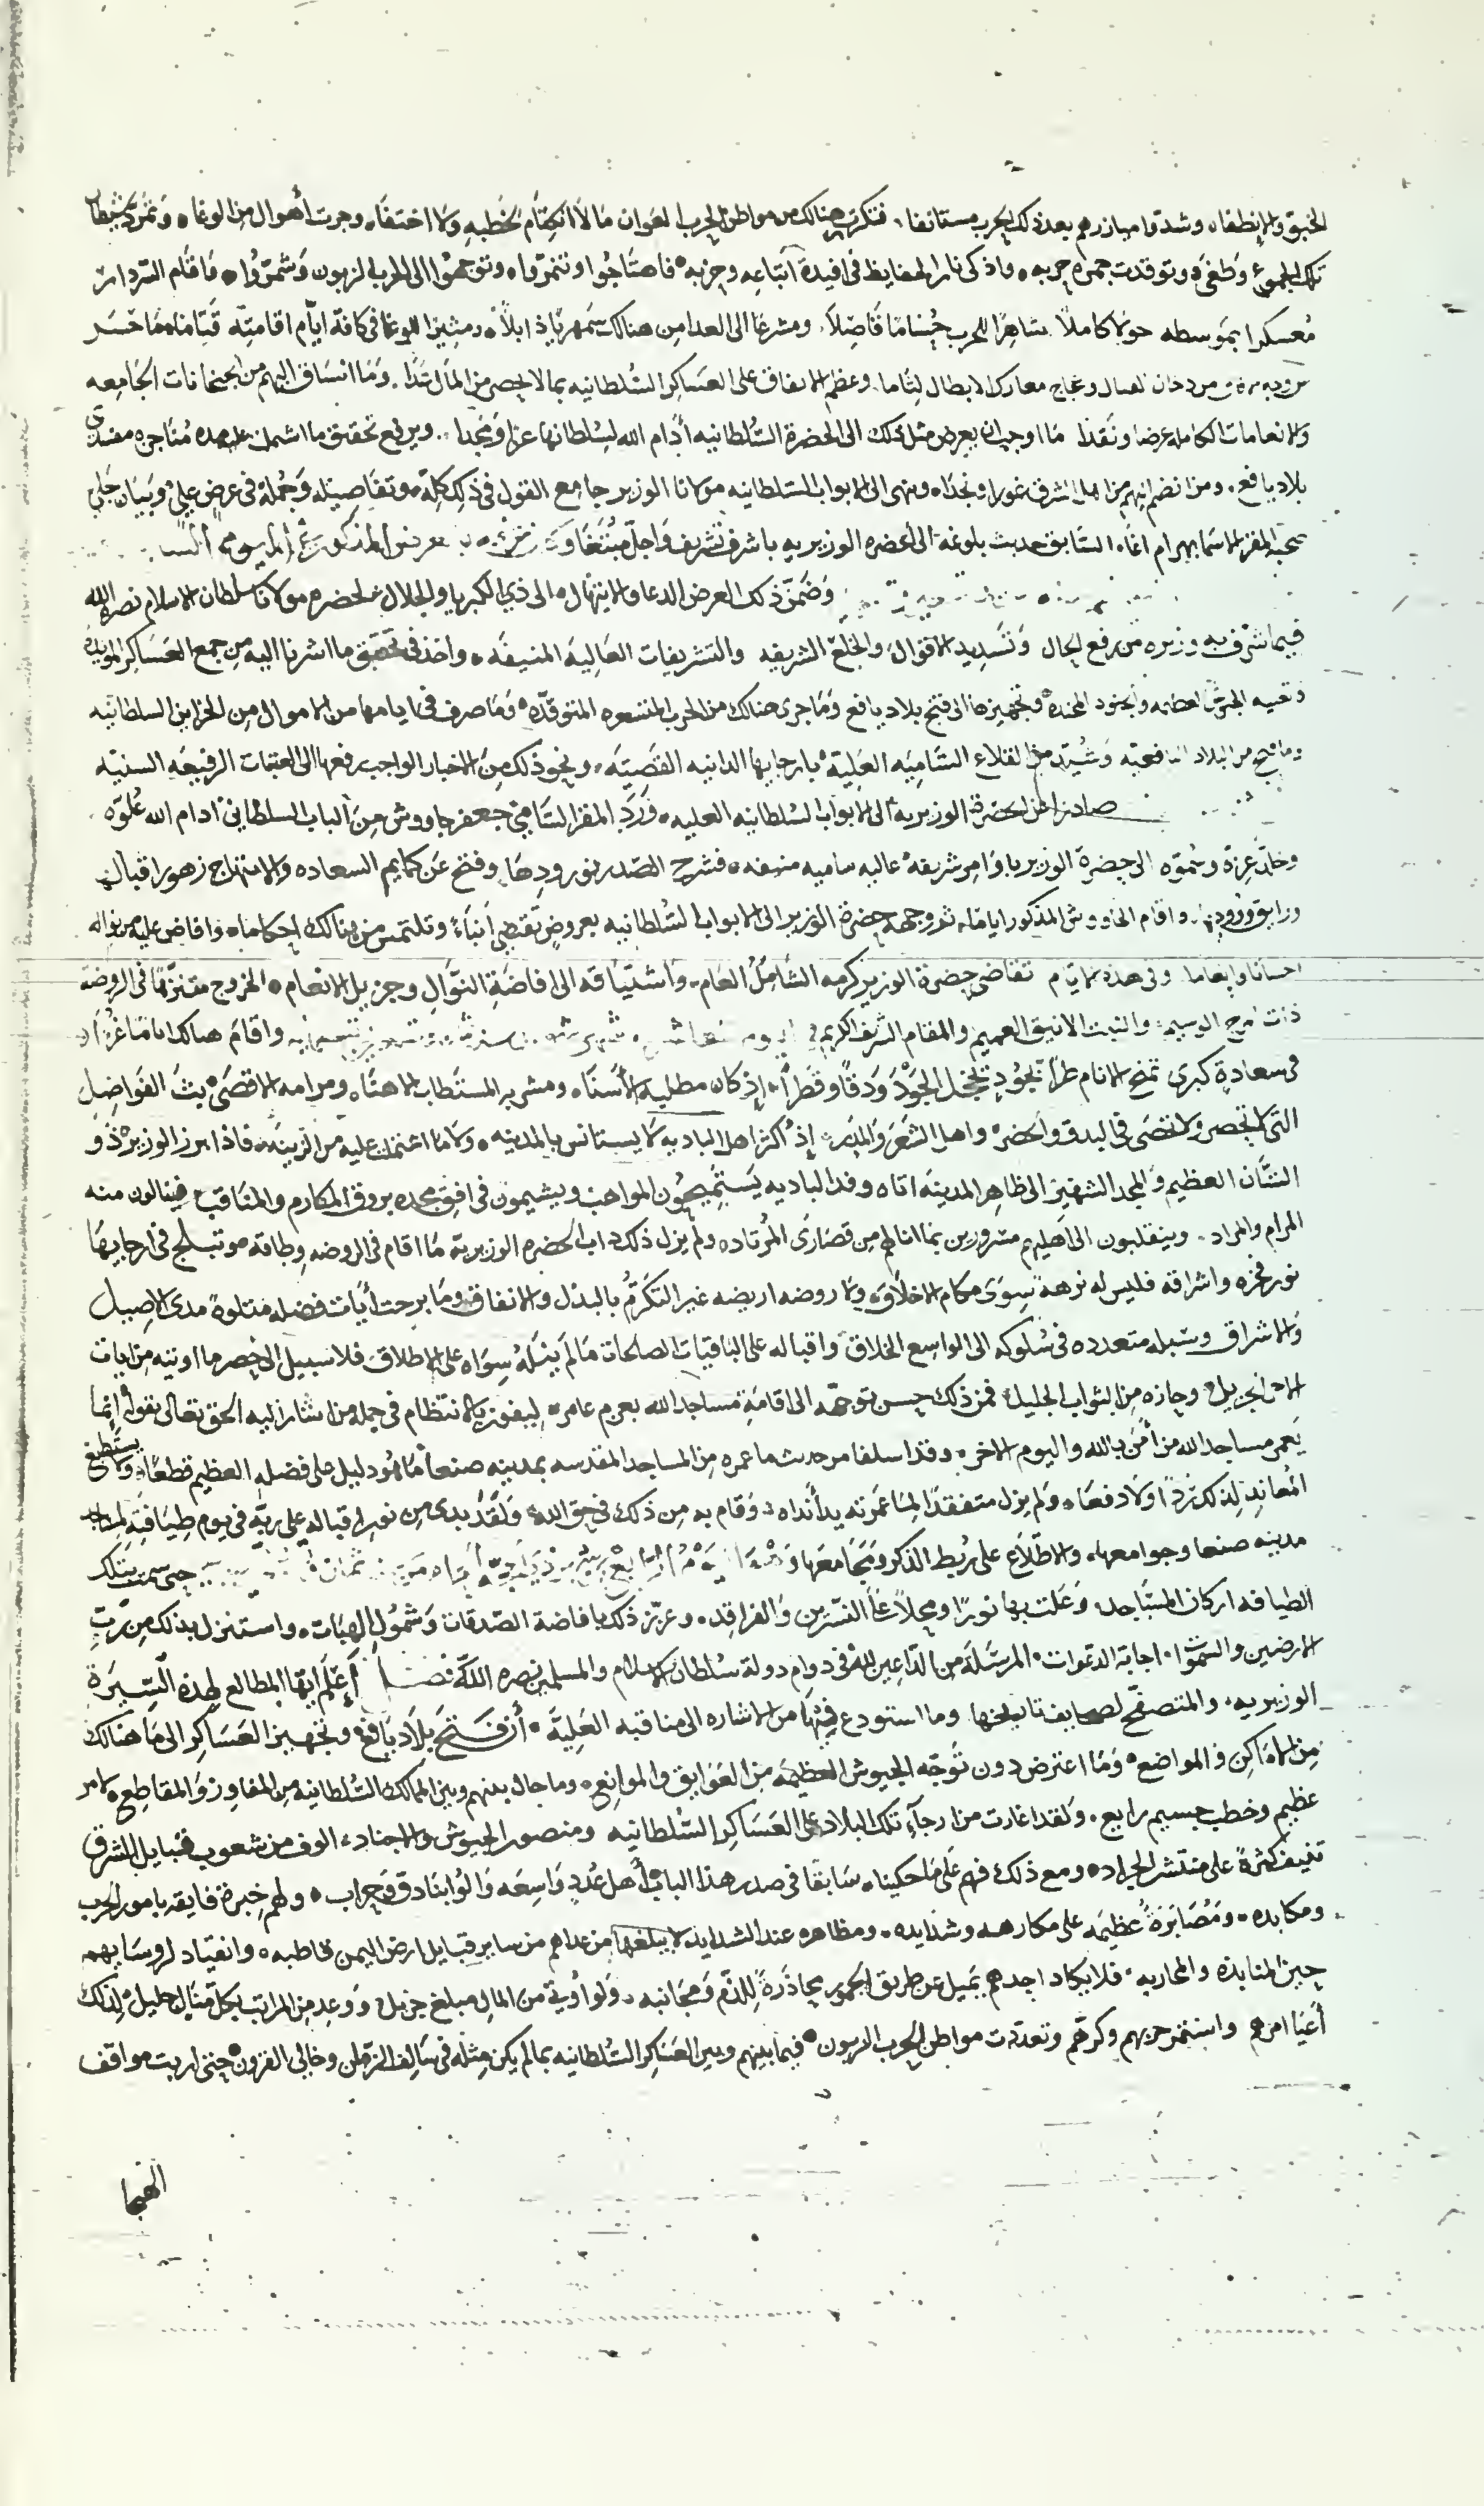 الخبق والانطفاء وشدوا مبازرهم بعد ذلك لحرب مستانفا فتكررت هنالك من مواطن الحرب العوان ما لا انكتام لخطبه ولا اختفاء وجرت أهوال من الوغاء وتمرد شيطان
تلك الجموع وطغى وتوقدت جمرة حربه واذكى نار الحفايظ في افيدة اتباعه وحزبه فاهتاجوا وتنمروا وتوجهوا الى الحرب الزبون وشمروا واقام السردار
معسكرا بموسطه حولا كاملا شاهرا للحرب حساما فاصلا ومشرعا الى العدا من هنالك سمهريا ذابلا ومثيرا للوغا في كافة ايام اقامته قتاما ما حسر
من دخان القتال وعجاج معارك الابطال لثاما وعظم الانفاق على العساكر السلطانيه بما لا يحصر من المال عدا وما انساق اليهم من الجبخانات الجامعه
والانعامات الكامله عرضا ونقدا ما اوجب ان يعرض مثل ذلك الى الحضرة السلطانيه أدام الله لسلطانها عزا ومجدا ويرفع تحقيق ما اشتملت عليه مده مناجزه مفسدي
بلاد يافع ومن انضم اليهم من اهل الشرق غورا ونجدا وينهى الى الابواب السلطانيه مولانا الوزير جامع القول في ذلك كله وتفاصيله وجمله في عرض علي وبيان جلي
صحبة المقر الاسما بهرام اغاء السابق حديث بلوغه الى الحضره الوزيريه باشرف تشريف واجل مبتغا
وضمن ذلك العرض الدعا والابتهال الى ذي الكبريا والجلال لحضره مولانا سلطان الاسلام نصره الله
فيما شرف به وزيره من رفع الحال وتسديد الاقوال والخلع الشريفه والتشريفات العاليه المنيفه واخذ في تحقيق ما اشرنا اليه من جمع العساكر المويده
وتعبيه الجيوش العظيمه والجنود المجنده وتجهيزها الى فتح بلاد يافع وما جرى هنالك من الحرب المتسعره المتوقده وما صرف في ايامها من الاموال من الخزاين السلطانيه
وما فتح من البلاد اليافعيه وشيد من القلاع الساميه العليه بارجايها الدانيه القصيه ونحو ذلك من الاخبار الواجب رفعها الى العتبات الرفيعه السنيه
صادرا من الحضرة الوزيريه الى الابواب السلطانيه العليه ورد المقر السامي جعفر جاووش من الباب السلطاني ادام الله علوه
وخلد عزه وسموه الى حضرة الوزير باوامر شريفه عاليه ساميه منيفه فشرح الصدر بنور ورودها وفتح عن كمايم السعاده والابتهاج زهور اقبالها
ورايق ورودها واقام الجاووش المذكور اياما ثم وجهه حضرة الوزير الى الابواب السلطانيه بعروض تقتضي أنباء وتلتمس من هنالك احكاما وافاض عليه من نواله
احسانا وانعاما وفي هذه الايام تقاضى حضرة الوزير كرمه الشامل العام واشتياقه الى افاضة النوال وجزيل الانعام الخروج متنزها في الروضه
ذات المرج الوسيم والنبت الانيق العميم والمقام الشريف الكريم في واقام هنالك اياما غرا
في سعادة كبرى تمنح الانام طرا بجود يخجل الجود ودقا وقطرا إذ كان مطلبه الأسنا ومشربه المستطاب الاهنا ومرامه الاقصى بث الفواضل
التي لا تحصر ولا تحصى في البدو والحضر واهل الشعر والمدر إذ اكثر اهل الباديه لا يستانس بالمدينه ولا ما اشتملت عليه من الزينه فاذا برز الوزير ذو
الشان العظيم والمجد الشهير الى ظاهر المدينه اتاه وفد الباديه يستميحون المواهب ويشيمون في افق مجده بروق المكارم والمناقب فينالون منه
المرام والمراد وينقلبون الى اهليهم مسرورين بما انالهم من قصارى المرتاد ولم يزل ذلك داب الحضره الوزيريه ما اقام في الروضه وطاقه وتبلج في ارجايها
نور فخره واشراقه فليس له نزهة سوى مكارم الاخلاق ولا روضه اريضه غير التكرم بالبذل والانفاق وما برحت أيات فضله متلوة مدى الاصيل
والاشراق وسبله متعدده في سلوكه الى الواسع الخلاق واقباله على الباقيات الصالحات ما لم ينله سواه على الاطلاق فلا سبيل الى حصر ما اوتيه من ايات
الاجر الجزيل وحازه من الثواب الجليل فمن ذلك حسن توجهه الى اقامة مساجد الله بعزم عامر ليفوز بالانتظام في جملة من اشار اليه الحق تعالى بقوله إنما
يعمر مساجد الله من أمن بالله واليوم الاخر وقد اسلفنا من حديث ما عمره من المساجد المقدسه بمدينه صنعا ما هو دليل على فضله العظيم قطعا ولا يستطيع
المعاند لذلك ردا ولا دفعا ولم يزل متفقدا لما عمرته يد أنداه وقام به من ذلك في حق الله ولقد بدى من نور اقباله على ربه في يوم طيافته لمساجد
مدينه صنعا وجوامعها والاطلاع على ربط الذكر ومجامعها حتى سمت بتلك
الطيافه اركان المساجد وعلت بها نورا ومحلا على النسرين والفراقد وعزز ذلك بافاضة الصدقات وشمول الهبات واستنزل بذلك من رب
الارضين والسموات اجابة الدعوات المرسلة من الداعين لله في دوام دولة سلطان الاسلام والمسلمين نصره الله فصل أعلم ايها المطالع لهذه السيرة
الوزيريه والمتصفح لصحايف تاريخها وما استودع فيها من الاشاره الى مناقبه العلية أن فتح بلاد يافع وتجهيز العساكر الى ما هنالك
من الاماكن والمواضع وما اعترض دون توجه الجيوش العظيمه من العوايق والموانع وما حال بينهم وبين الممالك السلطانيه من المفاوز والمقاطع لامر
عظيم وخطب جسيم رايع ولقد اغارت من ارجاء تلك البلاد على العساكر السلطانيه ومنصور الجيوش والاجناد الوف من شعوب قبايل المشرق
تنيف كثرة على منتشر الجراد ومع ذلك فهم على ما حكيناه سابقا في صدر هذا الباب أهل عدد واسعه والوا بنادق وحراب ولهم خبرة فايقه بامور الحرب
ومكايده ومصابرة عظيمه على مكارهه وشدايده ومظاهره عند الشدايد لا يبلغها من عداهم من ساير قبايل ارض اليمن قاطبه وانقياد لروسايهم
حين المنابذه والمحاربه فلا يكاد احدهم يميل عن طريق الجمهور محاذرة للذم ومجانبه ولو أوتي من المال مبلغ جزيل ووعد من المراتب بكل منال جليل لذلك
أعيا امرهم واستمر حربهم وكرهم وتعددت مواطن الحرب الزبون فيما بينهم وبين العساكر السلطانيه بما لم يكن مثله في سالف الزمان وخالي القرون حتى اربت مواقف
الهيجا